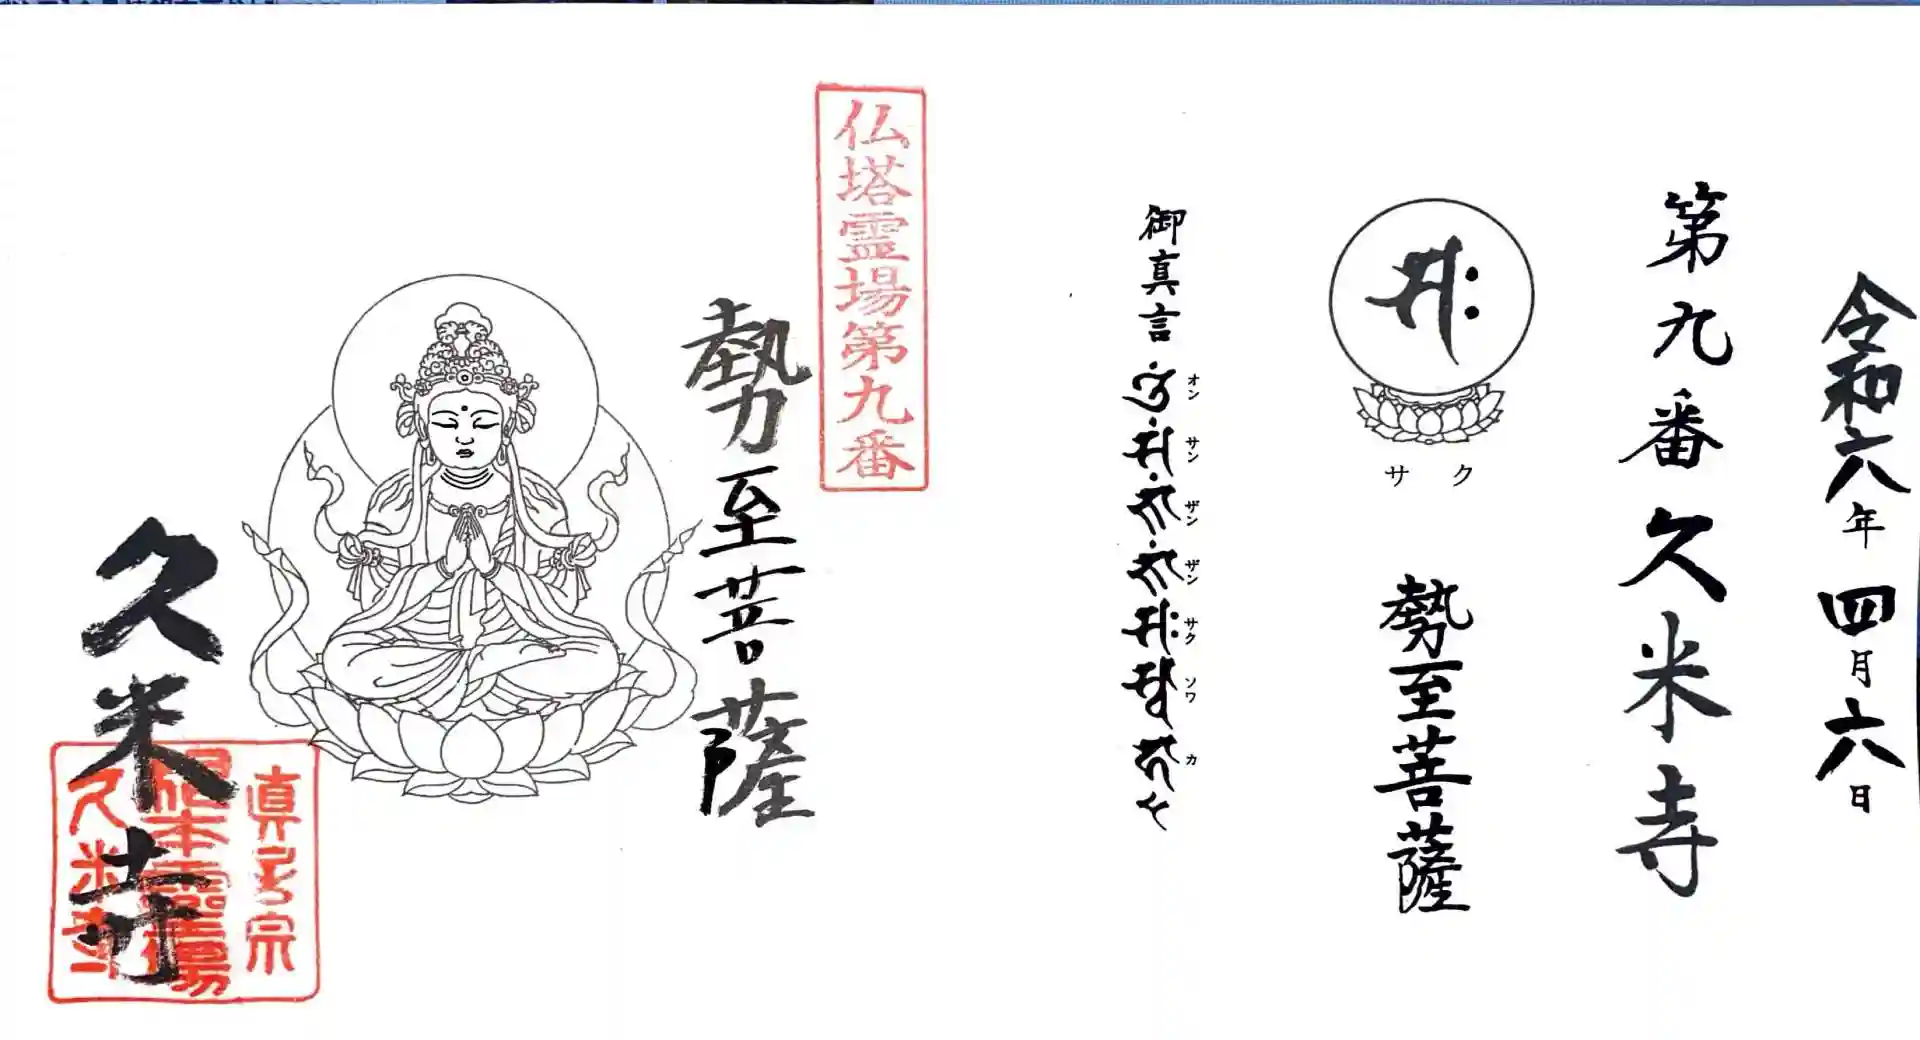 令和六年 四月六日
第九番久米寺
サク
勢至菩薩
御真言
オン サン ザン ザン サク ソワ カ
仏塔霊場第九番
勢至菩薩
久米寺
真言宗
根本霊場
久米寺